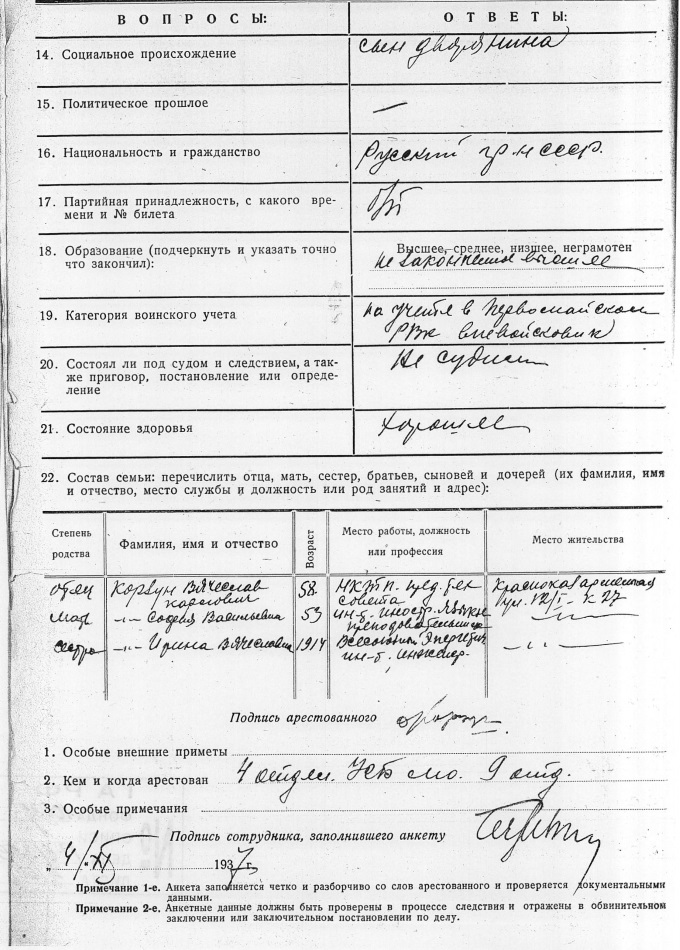 ВОПРОСЫ: ОТВЕТЫ:
14. Социальное происхождение сын дворянина
15. Политическое прошлое —
16. Национальность и гражданство Русский гр-н СССР.
17. Партийная принадлежность, с какого вре-
мени и № билета б/п
18. Образование (подчеркнуть и указать точно
что закончил): Высшее, среднее, низшее, неграмотен
не законченное высшее
19. Категория воинского учета на учете в Первомайском
РВК вневойсковик
20. Состоял ли под судом и следствием, а так-
же приговор, постановление или опреде-
ление не судим
21. Состояние здоровья хорошее
22. Состав семьи: перечислить отца, мать, сестер, братьев, сыновей и дочерей (их фамилия, имя
и отчество, место службы и должность или род занятий и адрес):
Степень
родства
Фамилия, имя и отчество
Возраст
Место работы, должность
или профессия
Место жительства
отец Корвун Вячеслав 58. НКТП. Красноказарменная
совета 12/I - к 27
мать -"- София Васильевна 53 ин-т. иностр. языков
преподавательница -"-
сестра -"- Ирина Вячеславовна 1914 Всесоюзный
ин-т. инженер. -"-
Подпись арестованного
1. Особые внешние приметы
2. Кем и когда арестован 4 отдел. УГБ МО. 9 отд.
3. Особые примечания
Подпись сотрудника, заполнившего анкету
„ 4/XI 1937 г.
Примечание 1-е. Анкета заполняется четко и разборчиво со слов арестованного и проверяется документальными
данными.
Примечание 2-е. Анкетные данные должны быть проверены в процессе следствия и отражены в обвинительном
заключении или заключительном постановлении по делу.